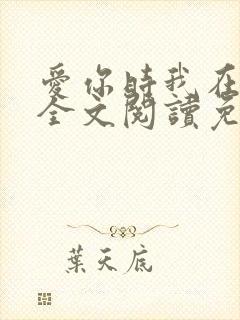 愛你時我在
全文閱讀免
葉天底